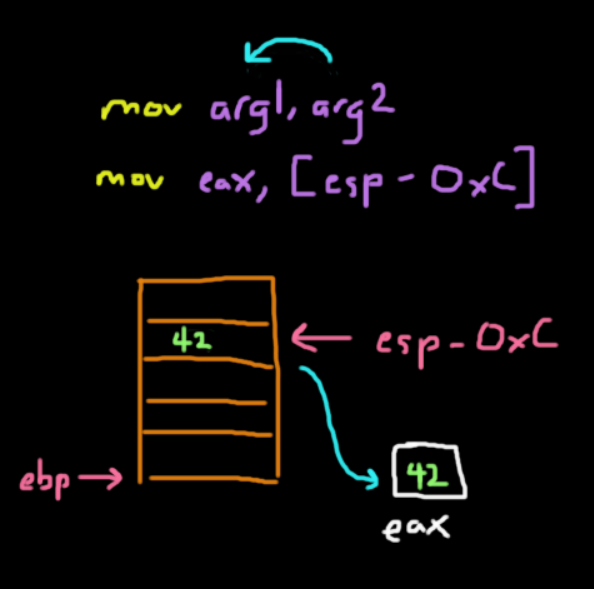 mov arg1, arg2
mov eax, [esp - 0xC]
42
esp - 0xC
ebp
42
eax